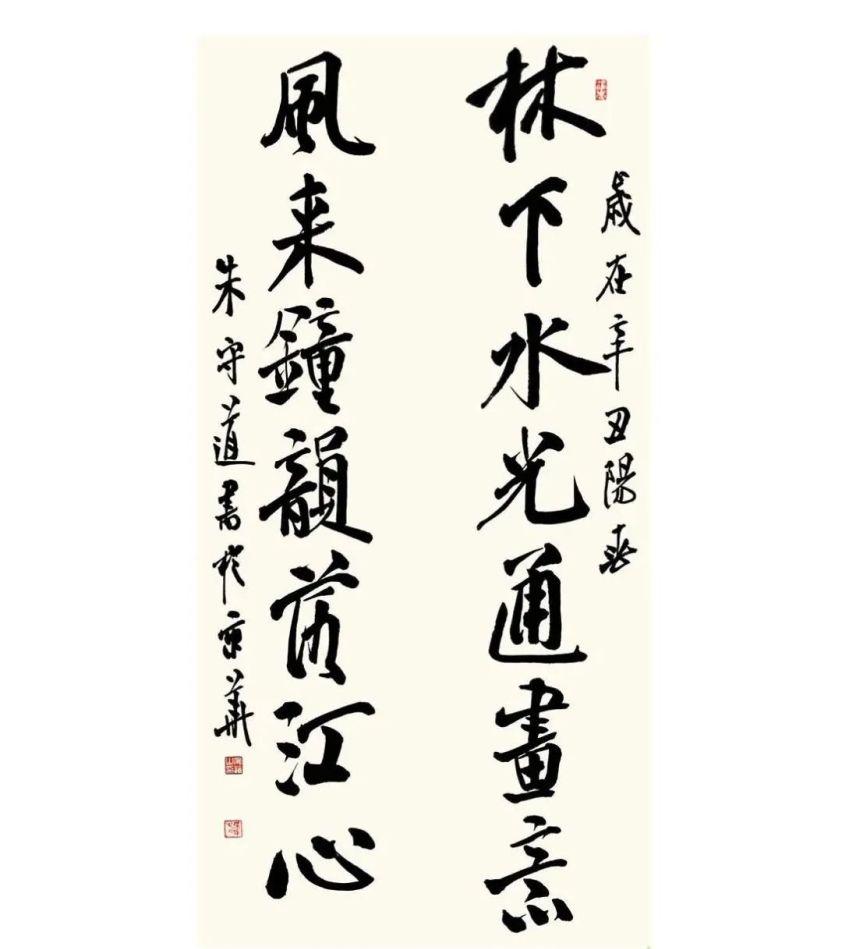 歲在辛丑陽春
林下水光通畫意
風来鐘韻落江心
朱守道書於京華